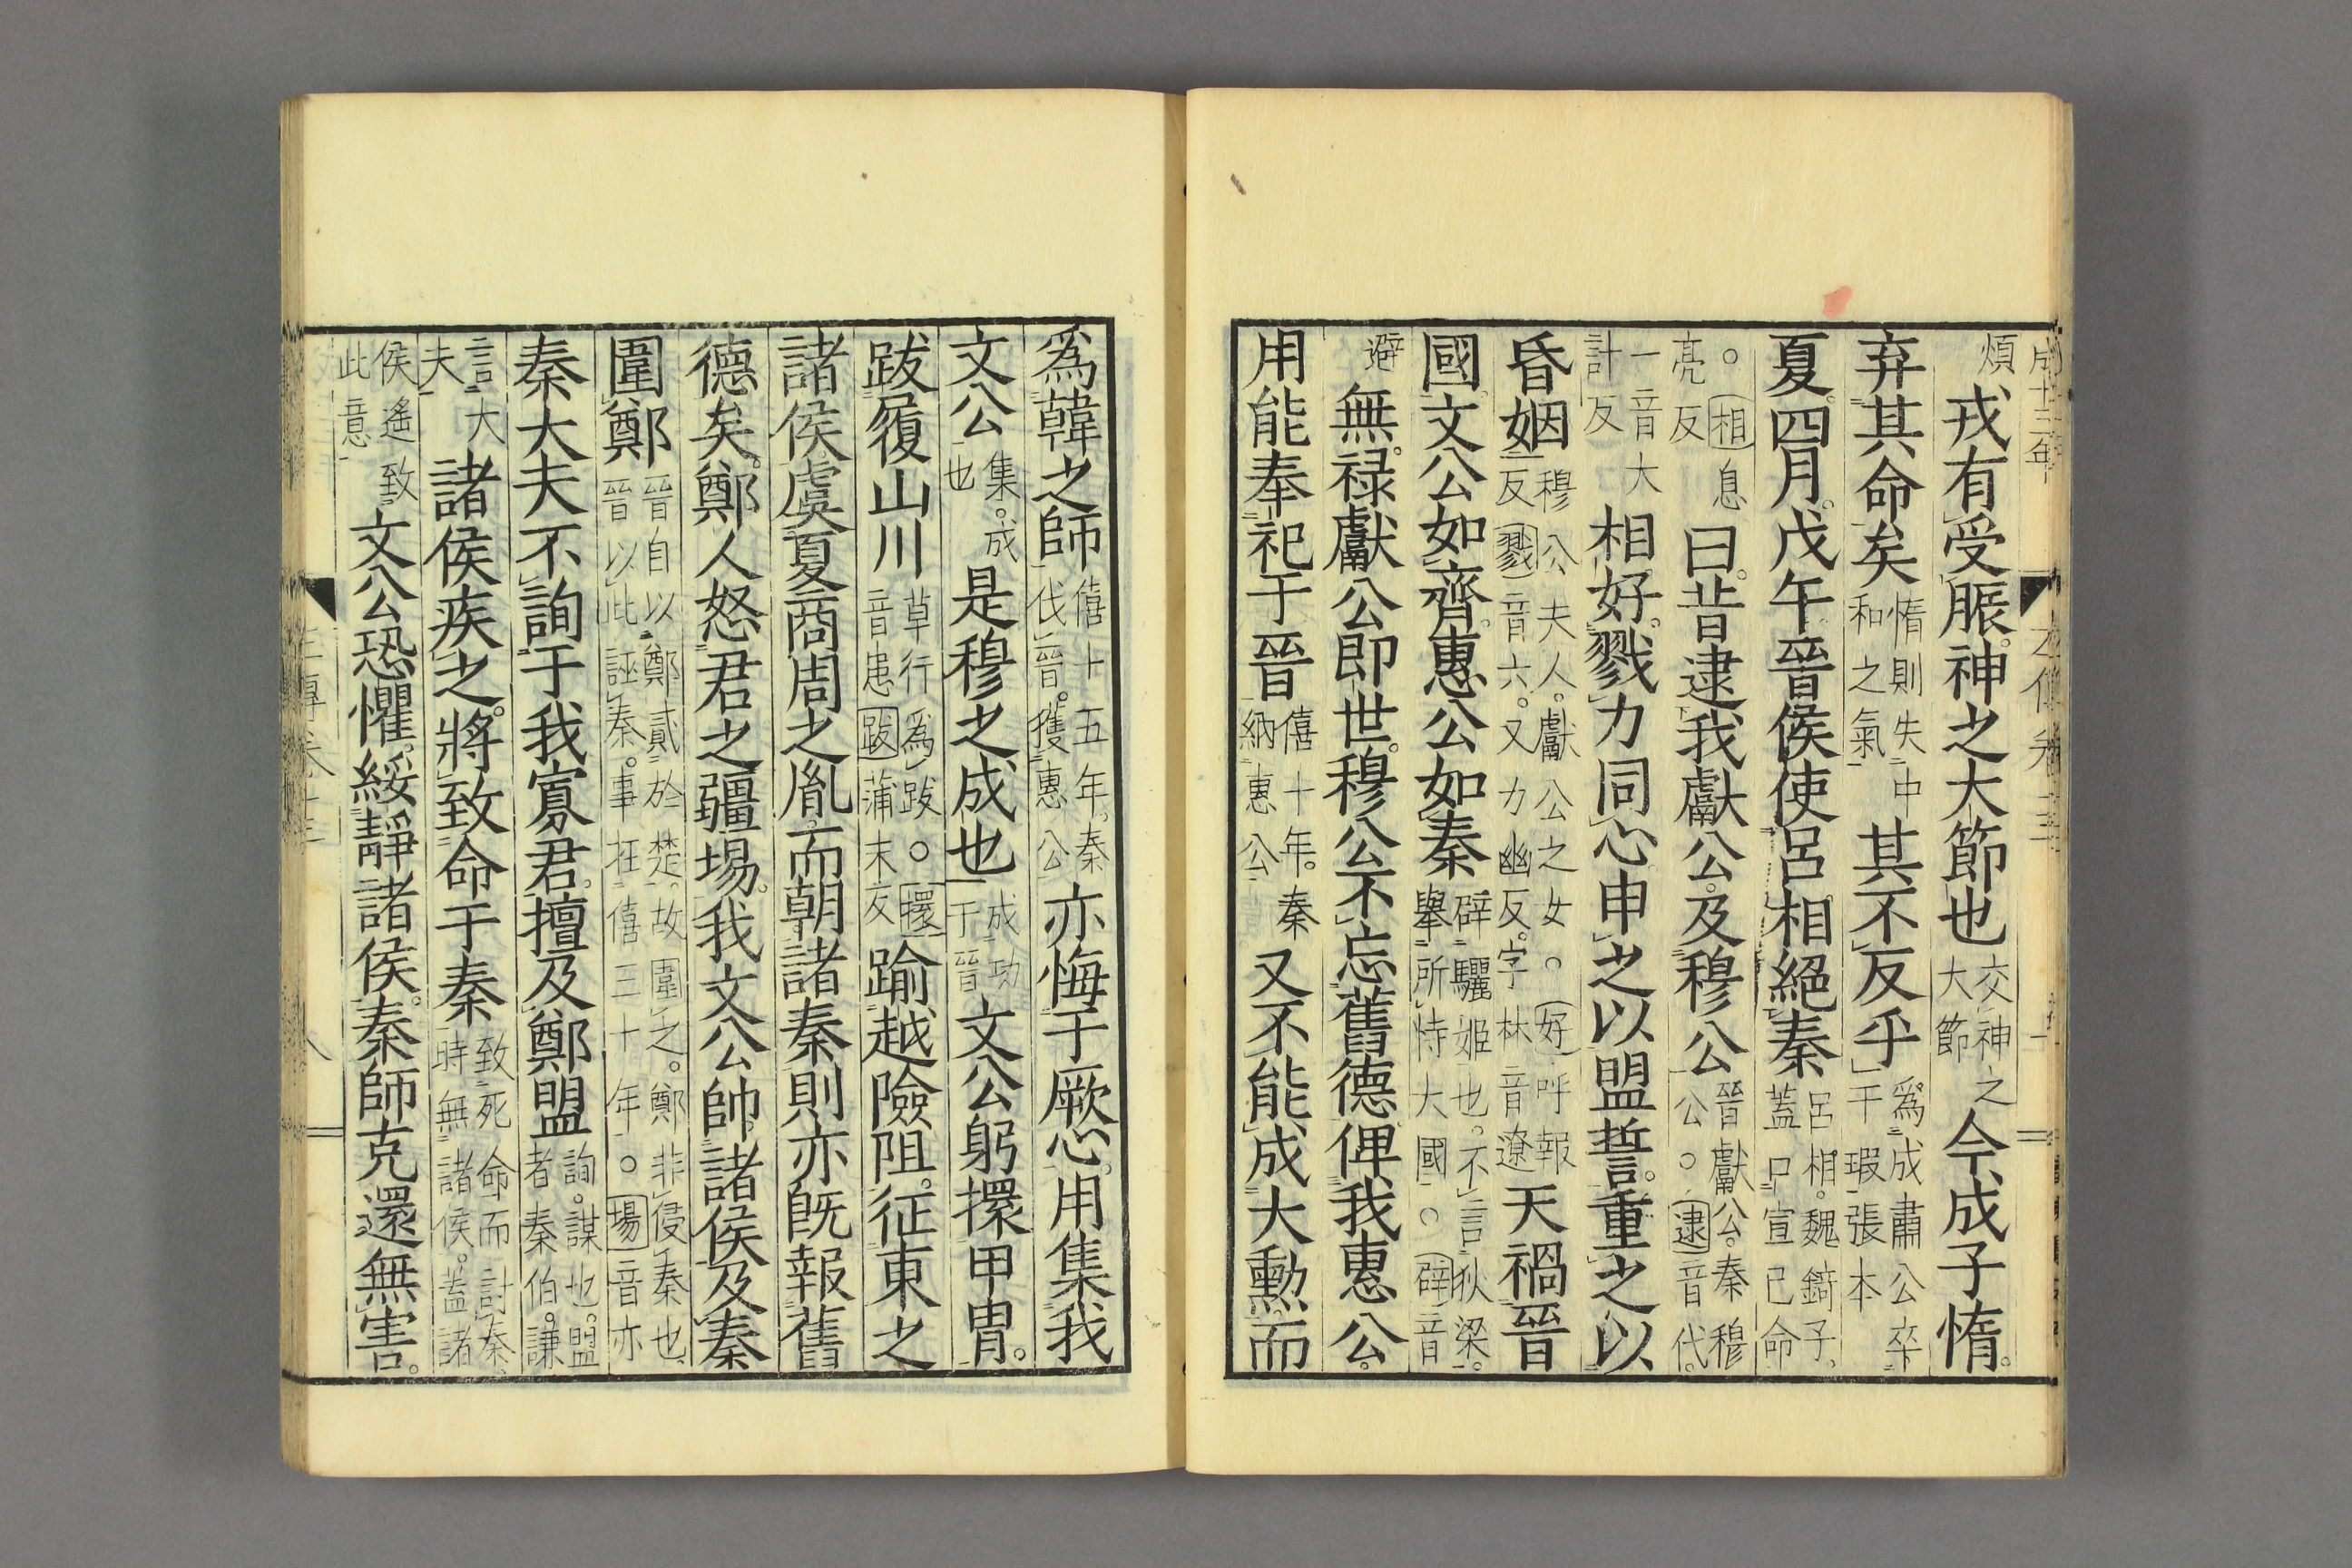 成十三年 左傳卷十三
煩戎有受脤。神之大節也交神之大節今成子惰。
弃其命矣惰則失中和之氣其不反乎爲成肅公卒于瑕張本
夏。四月。戊午。晉侯使呂相絕秦呂相。魏錡子。蓋口宣己命
○相息亮反曰。昔逮我獻公。及穆公晉獻公。秦穆公。○逮音代。
一音大計反相好。戮力同心。申之以盟誓。重之以
昏姻穆公夫人。獻公之女。○好呼報反戮音六。又力幽反。字林音遼天禍晉
國。文公如齊。惠公如秦辟驪姬也。不言狄梁。舉所恃大國。○辟音
避無祿。獻公即世。穆公不忘舊德。俾我惠公。
用能奉祀于晉僖十年。秦納惠公又不能成大勳。而
爲韓之師僖十五年。秦伐晉。獲惠公亦悔于厥心。用集我
文公集。成也是穆之成也成功于晉文公躬擐甲冑。
跋履山川草行爲跋。○擐音患跋蒲末反踰越險阻。征東之
諸侯。虞夏商周之胤。而朝諸秦。則亦既報舊
德矣。鄭人怒君之疆埸。我文公帥諸侯及秦
圍鄭晉自以鄭貳於楚。故圍之。鄭非侵秦也。晉以此誣秦。事在僖三十年。○埸音亦
秦大夫不詢于我寡君。擅及鄭盟詢。謀也。盟者秦伯。謙
言大夫諸侯疾之。將致命于秦致死命而討秦。時無諸侯。蓋諸
侯遙致此意文公恐懼。綏靜諸侯。秦師克還無害。